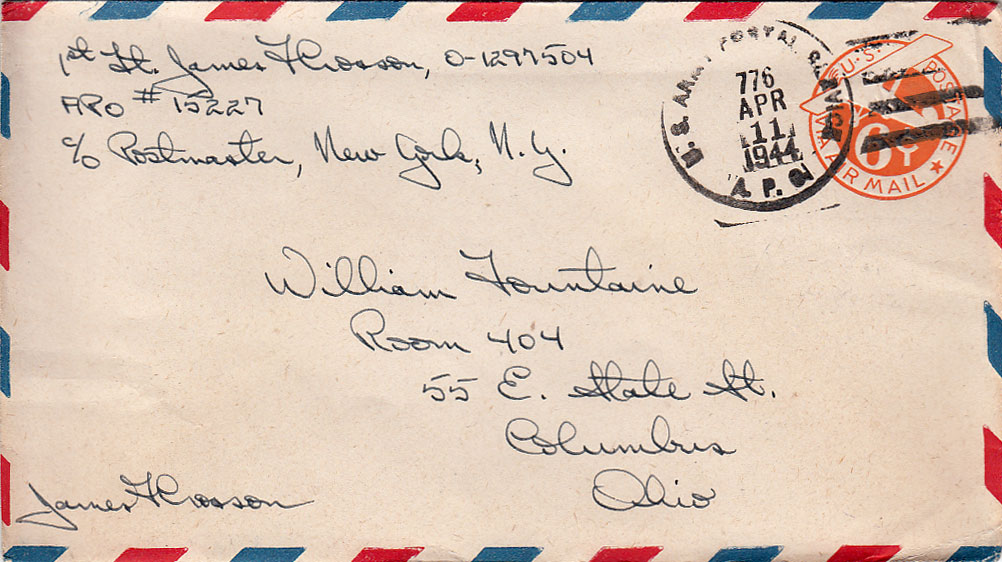 1st Lt. James H Crosson, O-1297504
APO # 15227
c/o Postmaster, New York, N.Y.
U.S. ARMY POSTAL
776
APR
11
1944
A. P. O.
U.S. POSTAGE
6¢
VIA AIR MAIL
William Fountaine
Room 404
55 E. State St.
Columbus
Ohio
James H Crosson